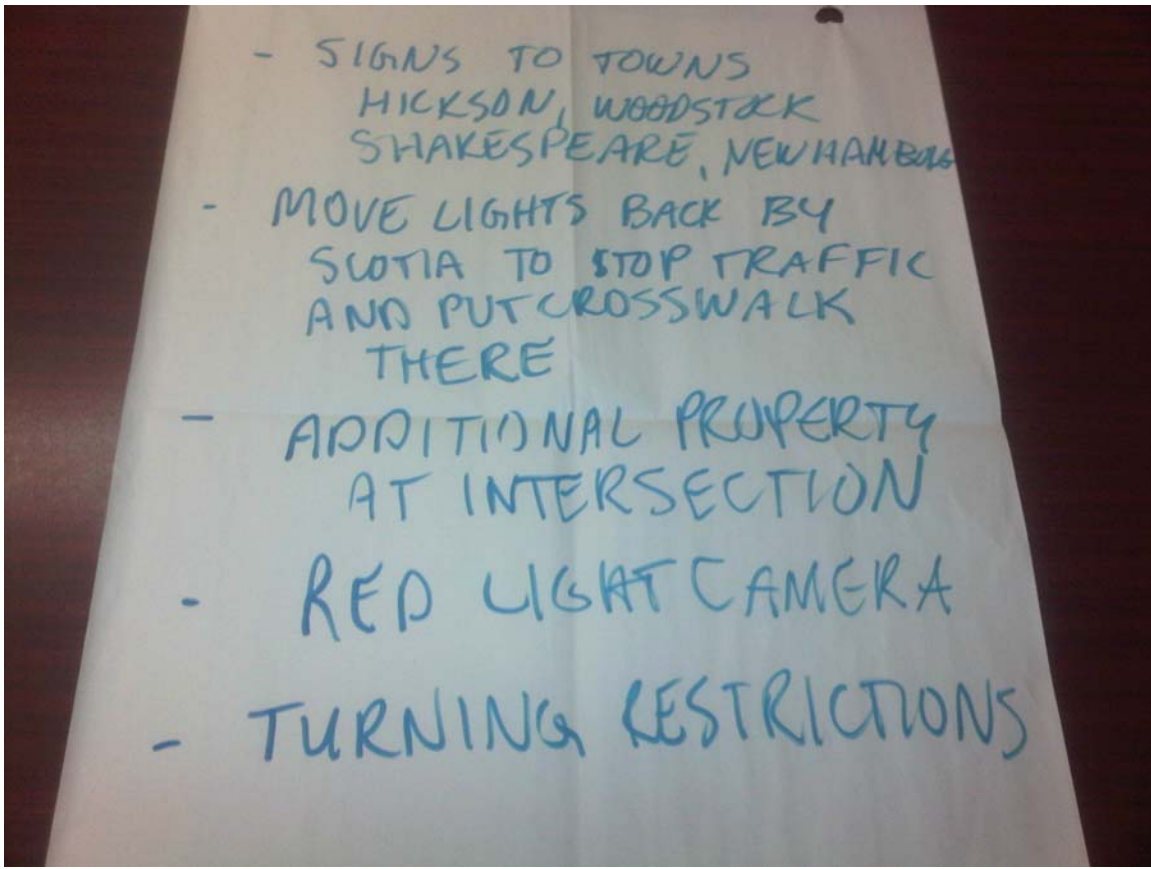 - SIGNS TO TOWNS
HICKSON, WOODSTOCK
SHAKESPEARE, NEW HAMBURG
- MOVE LIGHTS BACK BY
SCOTIA TO STOP TRAFFIC
AND PUT CROSSWALK
THERE
- ADDITIONAL PROPERTY
AT INTERSECTION
- RED LIGHT CAMERA
- TURNING RESTRICTIONS